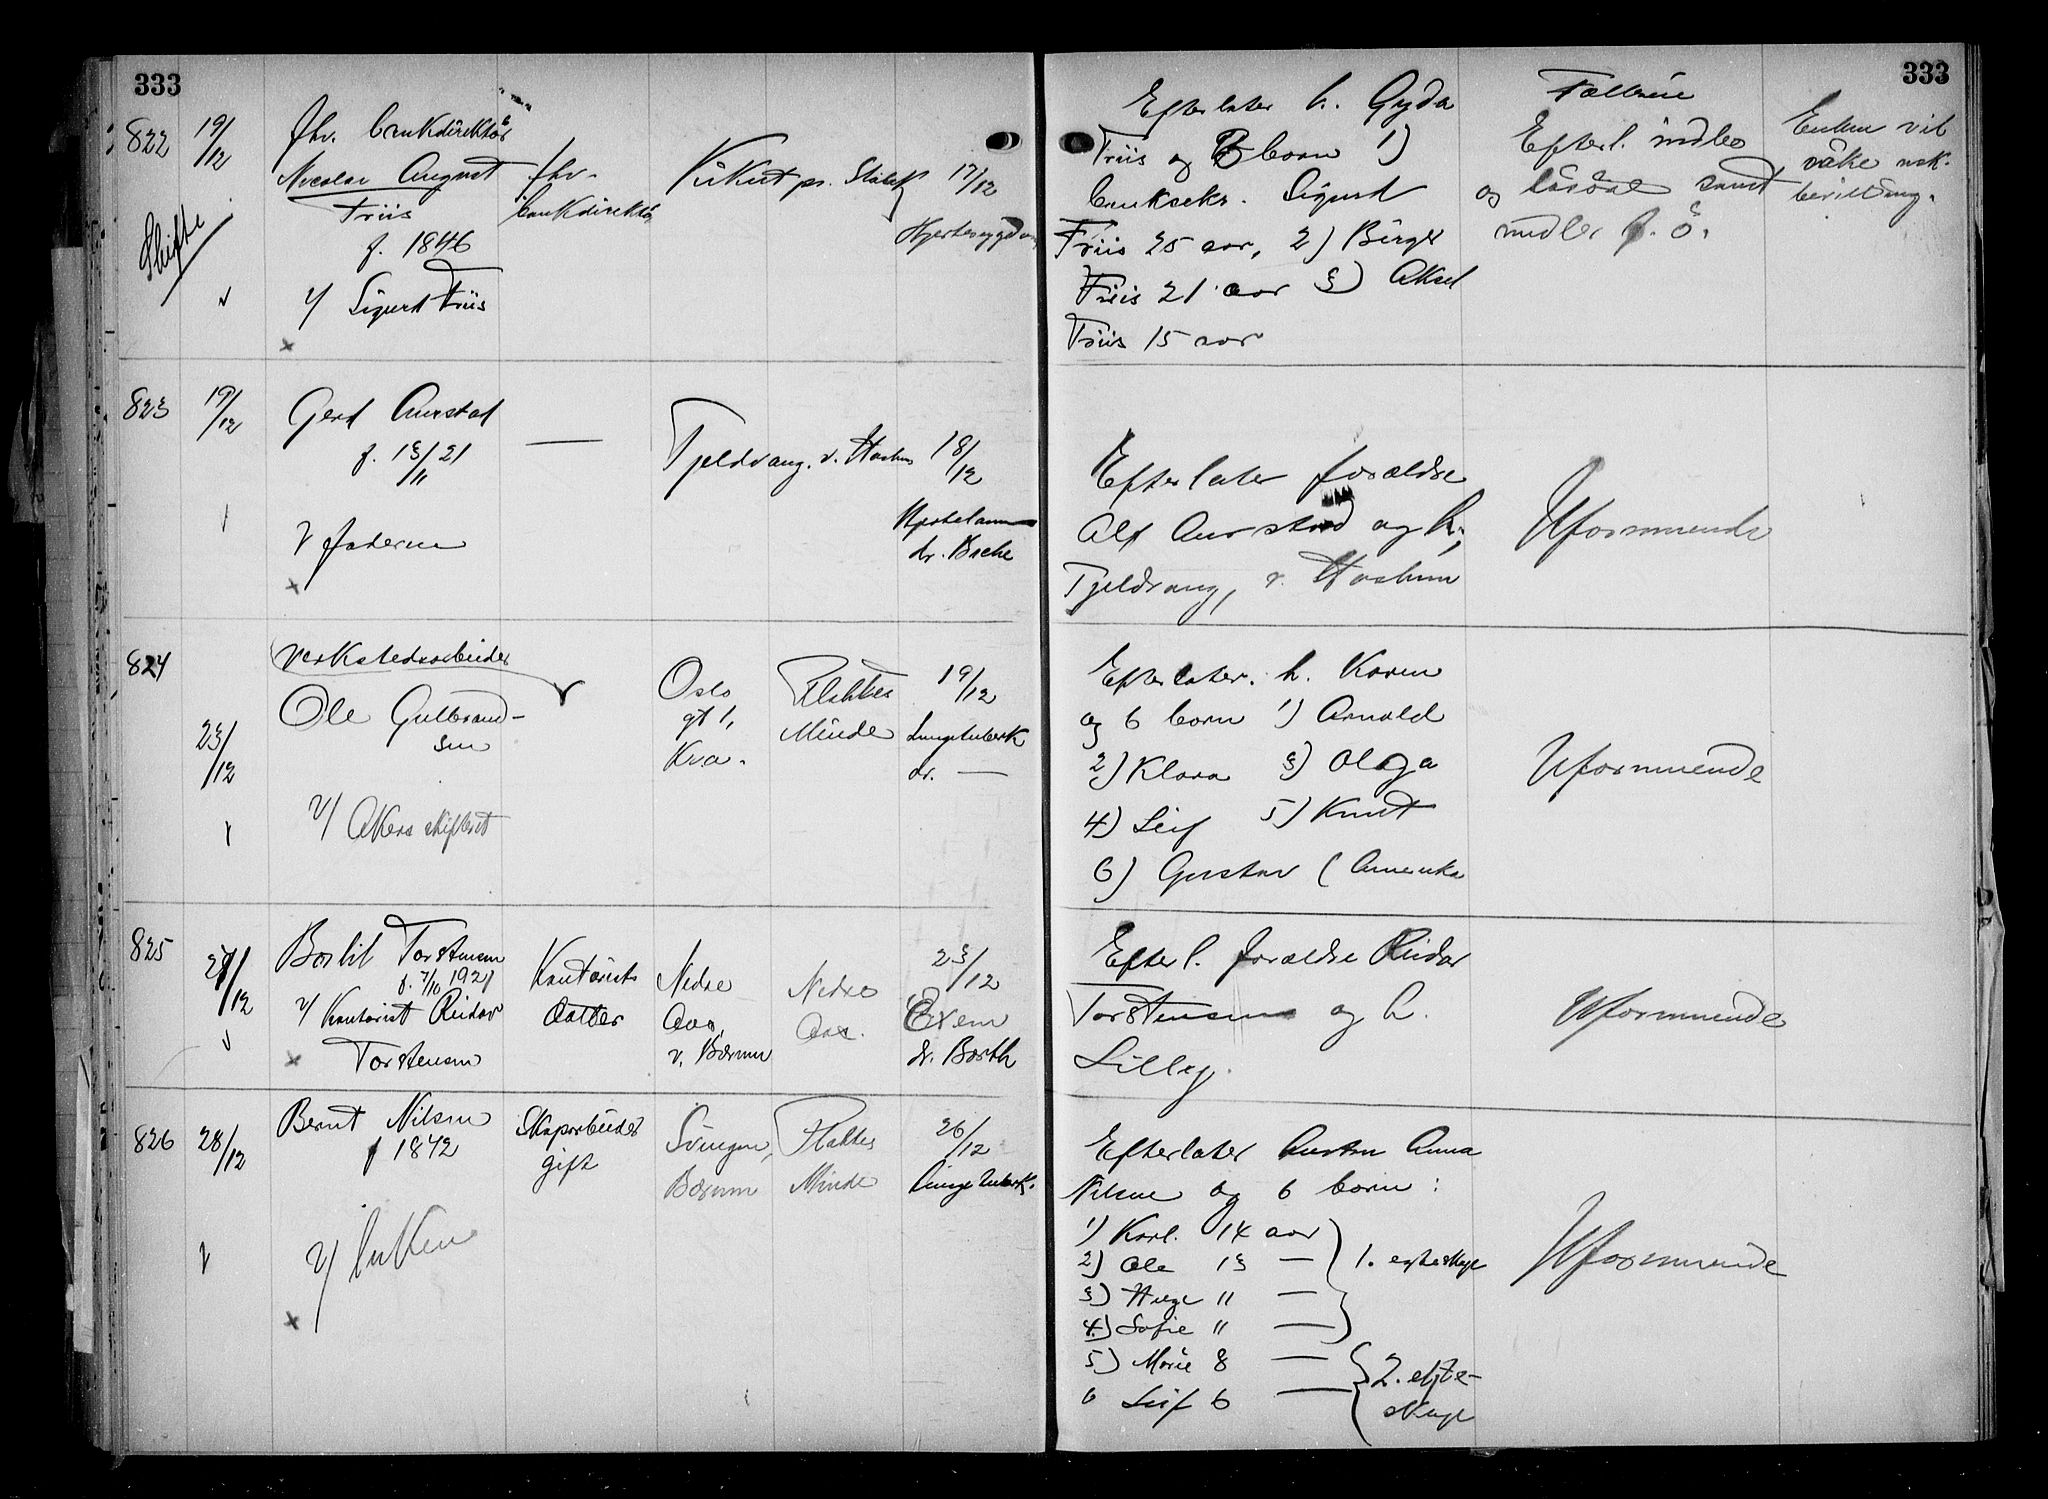 333
333
822
19/12
fhv. bankdirektör
Nicolai August
Friis
f. 1846
v/ Sigurd Friis
Skifte
fhv.
bankdirektör
pr. Stabek
17/12
Hjertesygdom
Efterlater h. Gyda
Friis og 3 born 1)
banksekr. Sigurd
Friis 25 aar, 2) Birger
Friis 21 aar 3) Aksel
Friis 15 aar
Fælleseie
Efterl. indbo
og løsøre samt
midler f. ö.
Enken vil
søke usk.
bevilling.
823
19/12
Gerd Aurstad
f. 13/11 21
v faderen
—
Fjeldvang. v. Haslum
18/12
dr. Bache
Efterlater forældre
Alf Aurstad og h.,
Fjeldvang, v. Haslum
Uformuende
824
23/12
Verkstedsarbeider
Ole Gulbrand-
sen
v/ Akers skifteret
Oslo
gt 1,
Kra.
Flattes
Minde
19/12
Lungetuberk
dr. —
Efterlater. h. Karen
og 6 born 1) Arnold
2) Klara 3) Olga
4) Leif 5) Knut
6) Gustav (Amerika
Uformuende
825
27/12
Borlil Torstensen
f. 7/10 1921
v/ Kontorist Reidar
Torstensen
Kontorists
datter
Nedre
Aas,
v. Bærum
Nedre
Aas.
23/12
Exem
dr. Barth
Efterl. forældre Reidar
Torstensen og h.
Lilly.
Uformuende
826
28/12
Bernt Nilsen
f 1872
v/ enken
Skoparbeider
gift
Svingen,
Bærum
Flattes
Minde
26/12
Lungetuberk.
Efterlater hustru Anna
Nilsen og 6 born:
1) Karl. 14 aar
2) Ole 13 —
3) Helge 11 —
4) Sofie 11 —
1. egteskap
5) Marie 8 —
6 Leif 6 —
2. egte-
skap